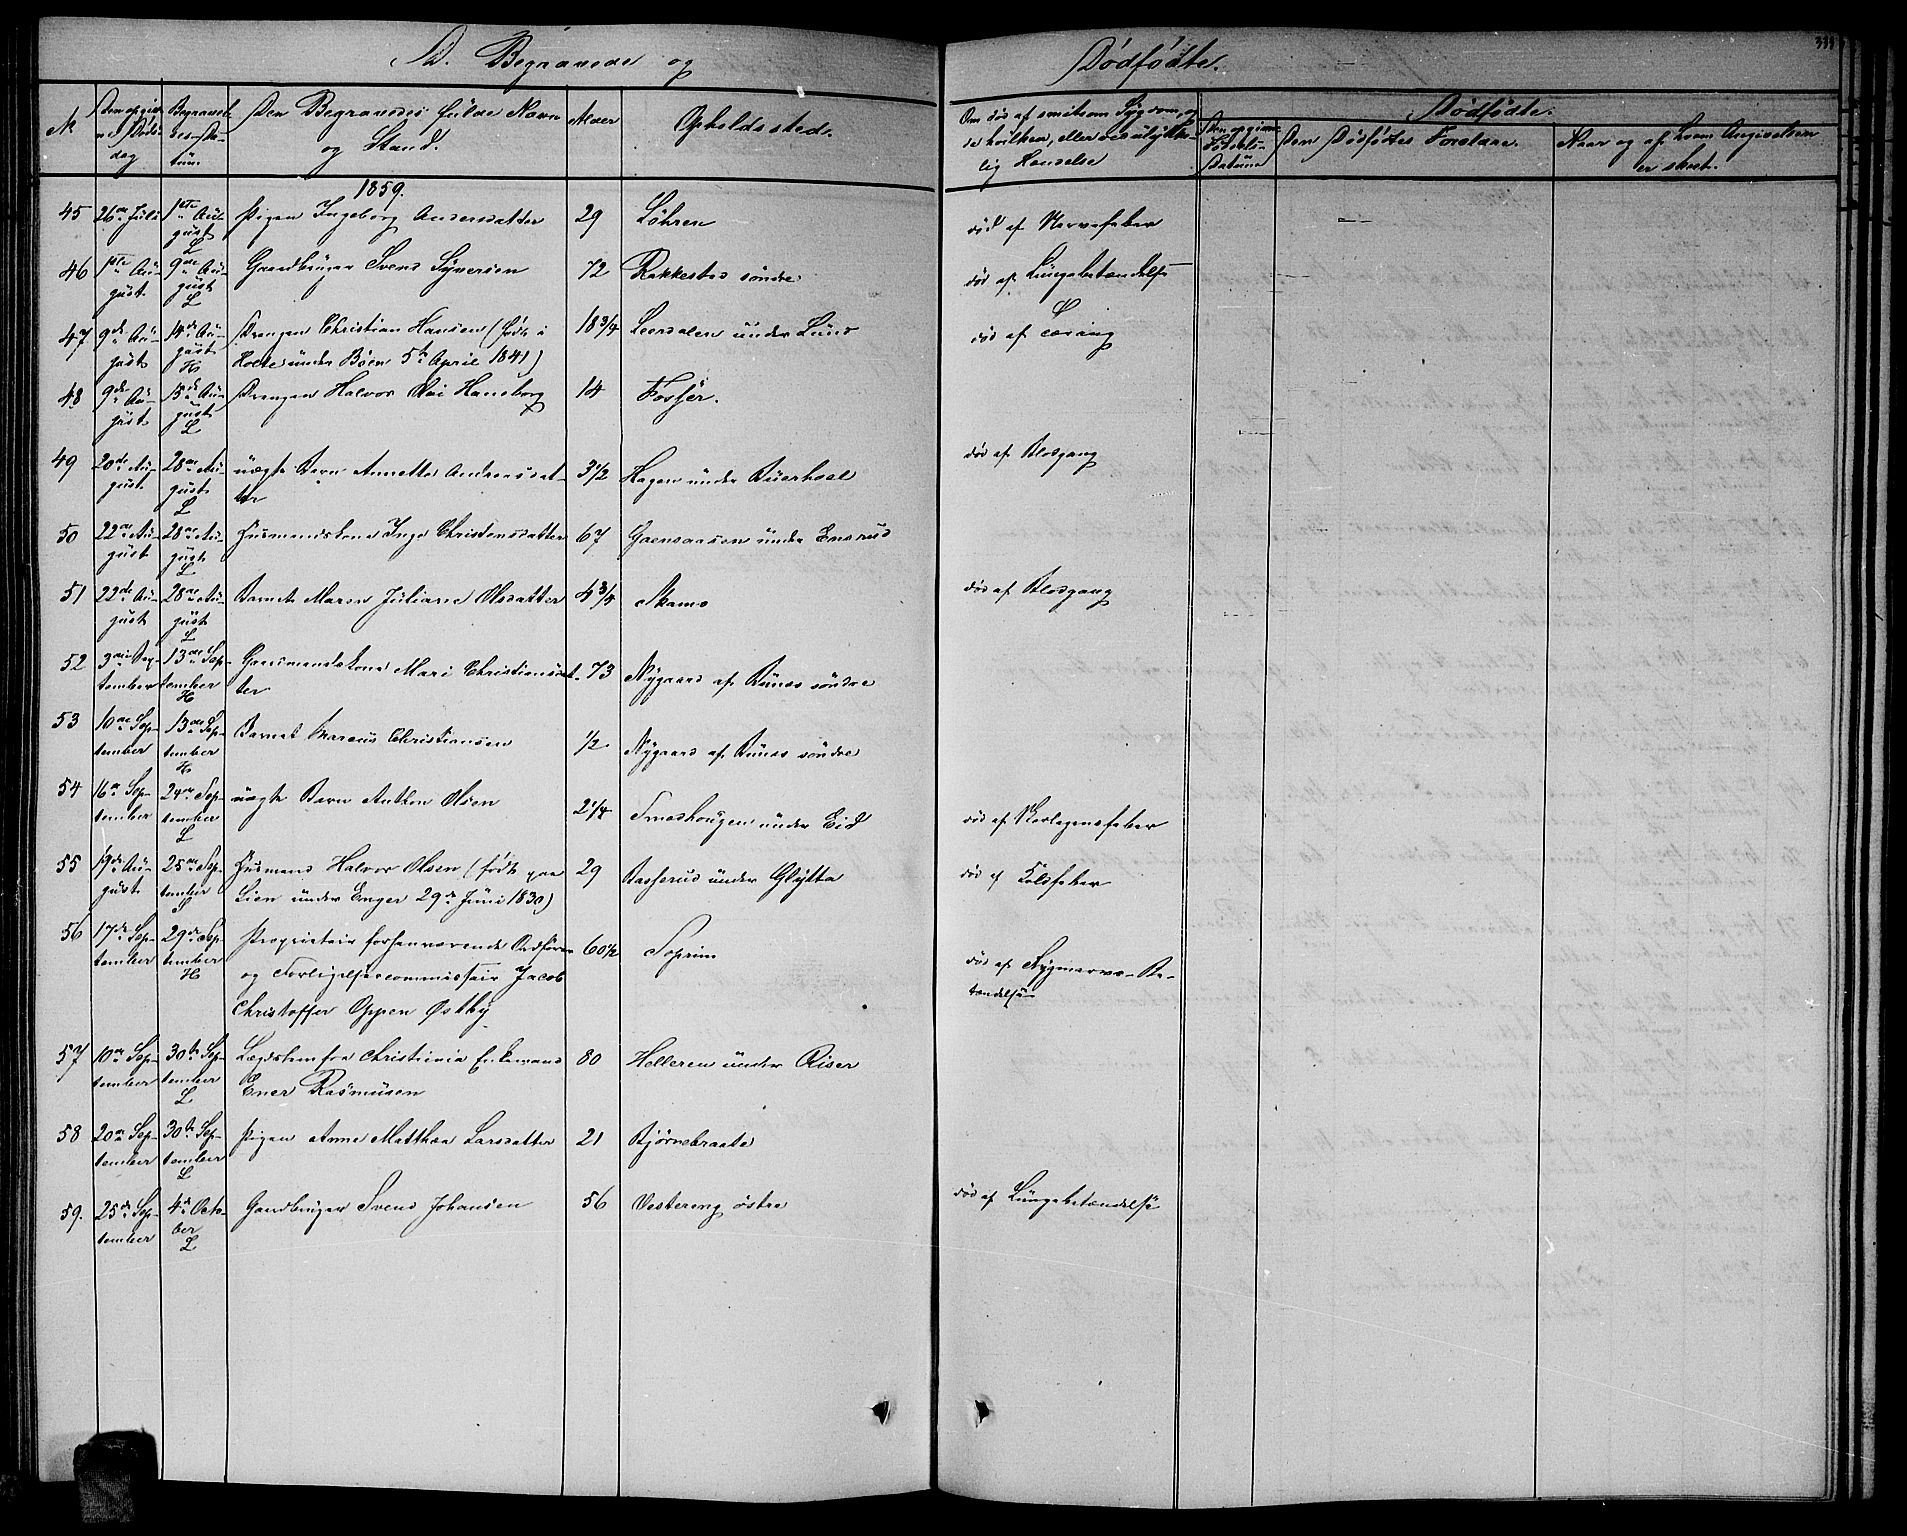 D. Begravede og Dødfødte.
331
№ | Den opgivne Døds-dag | Begravelses-Datum | Den Begravedes fulde Navn og Stand. | Alder | Opholdssted. | Om død af smitsom Sygdom, og da hvilken, eller ved ulykkelig Hændelse | Dødfødte.
Den opgivne Fødsels-Datum | Den Dødfødtes Forældre. | Naar og af hvem Angivelsen er skeet.
1859.
45 | 26de Juli | 1ste August L | Pigen Ingeborg Andersdatter | 29 | Løhren | død af Nervefeber
46 | 1ste August | 9de August L | Gaardbruger Svend Syversen | 72 | Rakkestad søndre | død af Lungebetændelse
47 | 9de August | 14de August H | Drengen Christian Hansen (født i Holte under Böen 5te April 1841) | 18 3/4 | Leersdalen under Lund | død af Tæring
48 | 9de August | 15de August L | Drengen Halvor Hansborg | 14 | Fosser.
49 | 20de August | 28de August L | uægte Barn Annette Andreasdatter | 3 1/2 | Hagen under | død af Blodgang
50 | 22de August | 28de August L | Husmandskone Inge Christensdatter | 67 | under Ensrud
51 | 22de August | 28de August L | Barnet Maren Juliane Olsdatter | 4 3/4 | Skamo | død af Blodgang
52 | 3die September | 13de September H | Gaardmandskone Mari Christiansdatter | 73 | Nygaard af søndre
53 | 10de September | 13de September H | Barnet Marcus Christiansen | 1/2 | Nygaard af søndre
54 | 16de September | 24de September L | uægte Barn Anthon Olsen | 2 1/4 | under Eid | død af
55 | 19de August | 25de September S | Husmand Halvor Olsen (født paa Lien under Enger 29de Juni 1830) | 29 | Basserud under Glytta | død af Koldfeber
56 | 17de September | 29de September H | Proprietair forhenværende Ordfører og Forligelsescommissair Jacob Christoffer Oppen Østby | 60 1/2 | Soprim | død af Rygmarvs-Betændelse
57 | 10de September | 30te September L | Lægdslem fra Christiania Enkemand Ener Rasmusen | 80 | Helleren under Riser
58 | 20de September | 30te September L | Pigen Anne Matthea Larsdatter | 21 | Bjørnebraate
59. | 25de September | 4de October L | Gaardbruger Svend Johansen | 56 | Vestereng østre | død af Lungebetændelse